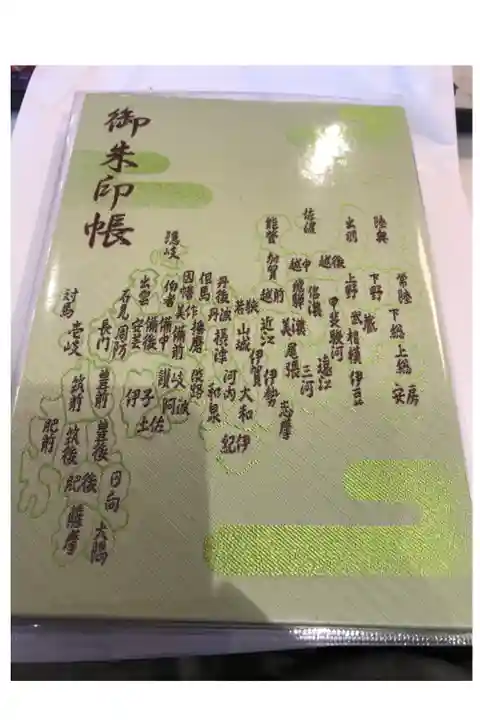 御朱印帳
陸奥
出羽
佐渡
能登
常陸
下総
上総
安房
下野
武蔵
相模
伊豆
上野
越後
甲斐
駿河
遠江
越中
信濃
三河
飛騨
美濃
尾張
志摩
加賀
越前
近江
伊賀
伊勢
若狭
山城
大和
紀伊
丹後
丹波
摂津
河内
和泉
但馬
播磨
淡路
因幡
美作
備前
隠岐
伯耆
備中
讃岐
阿波
出雲
備後
安芸
伊予
土佐
石見
周防
長門
対馬
壱岐
豊前
豊後
日向
大隅
筑前
筑後
肥後
薩摩
肥前